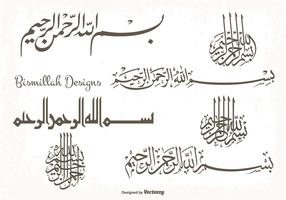 بسم الله الرحمن الرحيم
بسم الله الرحمن الرحيم
Bismillah Designs
بسم الله الرحمن الرحيم
بسم الله الرحمن الرحيم
بسم الله الرحمن الرحيم
بسم الله الرحمن الرحيم
بسم الله الرحمن الرحيم
Designed by Vecteezy